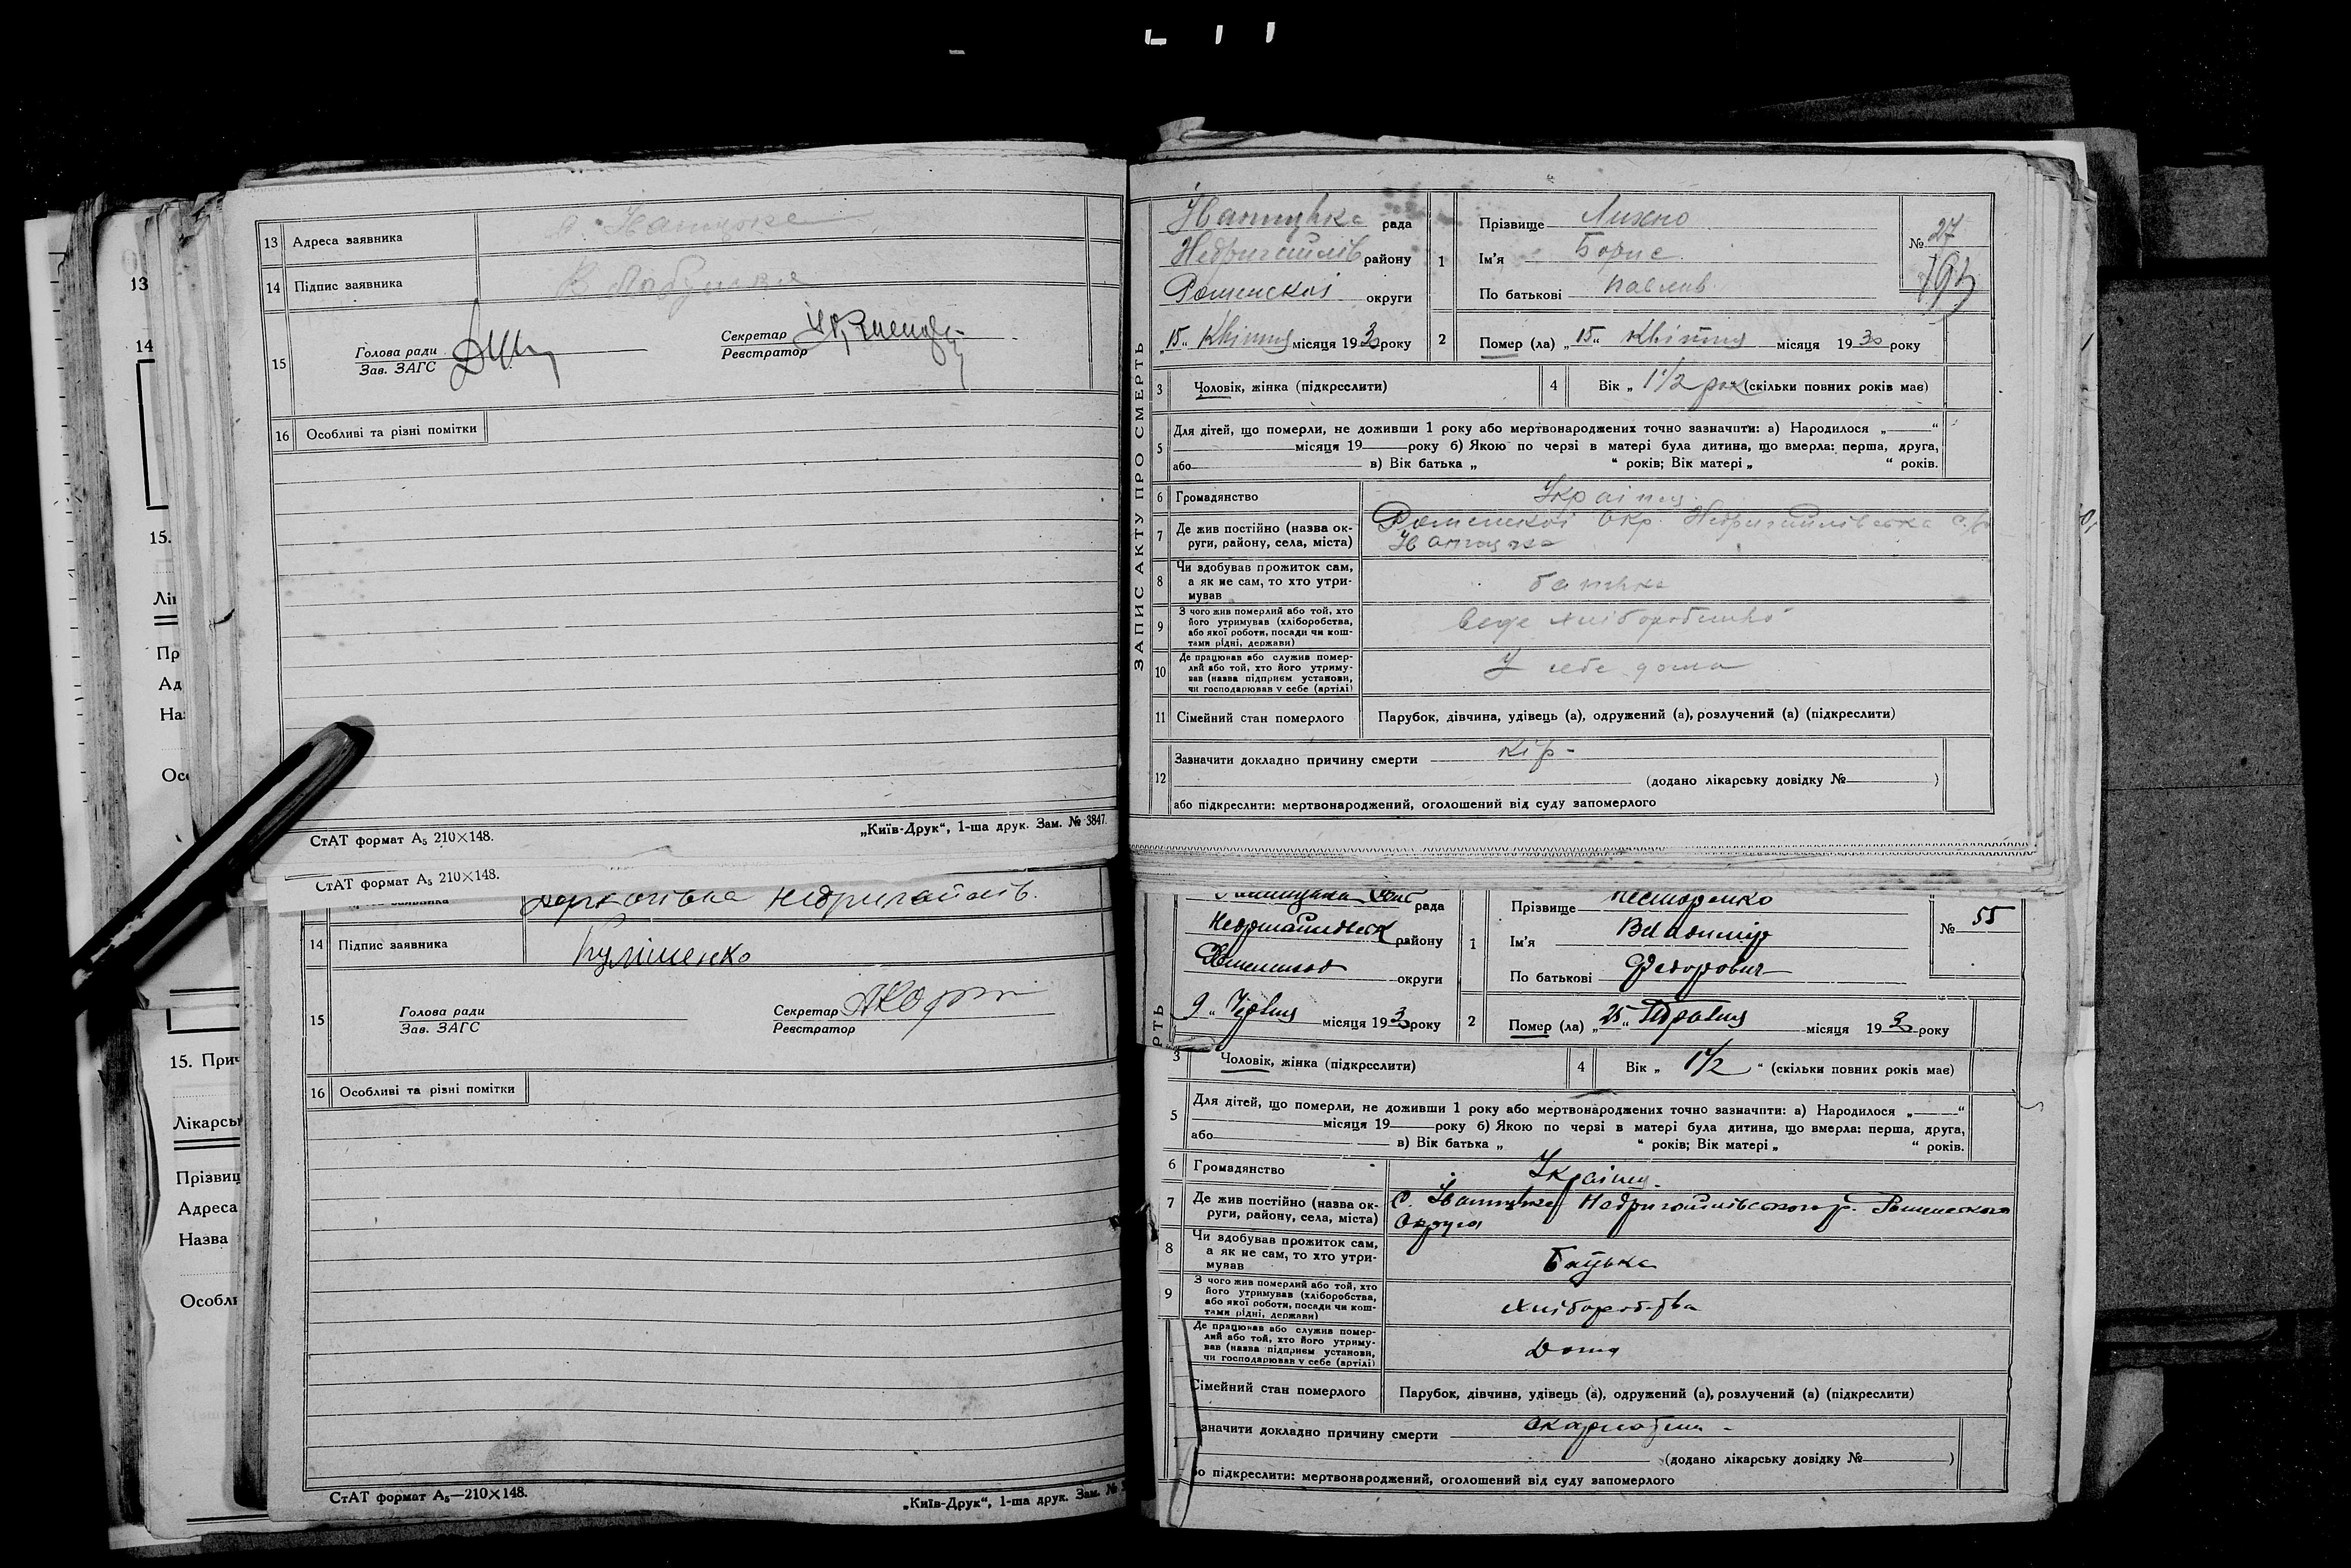 13 Адреса заявника
14 Підпис заявника
15 Голова ради Секретар
Зав. ЗАГС Реєстратор
16 Особливі та різні помітки
СтАТ формат А5 210×148. „Київ-Друк“, 1-ша друк. Зам. № 3847.
СтАТ формат А5 210×148.
Недригайлів.
14 Підпис заявника Куліченко
15 Голова ради Секретар
Зав. ЗАГС Реєстратор
16 Особливі та різні помітки
СтАТ формат А5—210×148. „Київ-Друк“, 1-ша друк. Зам. №
13
14
15.
Лі
Пр
Ад
На
Ос
15. Прич
Лікарсь
Прізвищ
Адреса
Назва
Особли
ЗАПИС АКТУ ПРО СМЕРТЬ
рада
Недригайлів району
Роменської округи
„15“ Квітня місяця 1930 року
1 Прізвище Лихно
Ім'я Борис
По батькові Павлов.
№ 27
2 Помер (ла) „15“ Квітня місяця 1930 року
3 Чоловік, жінка (підкреслити) 4 Вік „ 1 1/2 рок (скільки повних років має)
5 Для дітей, що померли, не доживши 1 року або мертвонароджених точно зазначити: а) Народилося „ “
місяця 19 року б) Якою по черзі в матері була дитина, що вмерла: перша, друга,
або в) Вік батька „ “ років; Вік матері „ “ років.
6 Громадянство Украінец.
7 Де жив постійно (назва ок-
руги, району, села, міста) Роменської Окр. Недригайлівська
8 Чи здобував прожиток сам,
а як не сам, то хто утри-
мував батько
9 З чого жив померлий або той, хто
його утримував (хліборобства,
або якої роботи, посади чи кош-
тами рідні, держави) веде хліборобство
10 Де працював або служив помер-
лий або той, хто його утриму-
вав (назва підприєм установи,
чи господарював у себе (артілі) У себе дома
11 Сімейний стан померлого Парубок, дівчина, удівець (а), одружений (а), розлучений (а) (підкреслити)
12 Зазначити докладно причину смерти кір -
(додано лікарську довідку № )
або підкреслити: мертвонароджений, оголошений від суду запомерлого
рада
району
округи
9 „ Червня місяця 1930 року
1 Прізвище Нестеренко
Ім'я Владимир
По батькові Федорович
№ 55
2 Помер (ла) „25“ Травня місяця 1930 року
РТЬ
3 Чоловік, жінка (підкреслити) 4 Вік „ 1 1/2 “ (скільки повних років має)
5 Для дітей, що померли, не доживши 1 року або мертвонароджених точно зазначити: а) Народилося „ “
місяця 19 року б) Якою по черзі в матері була дитина, що вмерла: перша, друга,
або в) Вік батька „ “ років; Вік матері „ “ років.
6 Громадянство Украінец.
7 Де жив постійно (назва ок-
руги, району, села, міста) с. Недригайлівського р. Роменського
Округа
8 Чи здобував прожиток сам,
а як не сам, то хто утри-
мував Батько
9 З чого жив померлий або той, хто
його утримував (хліборобства,
або якої роботи, посади чи кош-
тами рідні, держави) хліборобства
Де працював або служив помер-
лий або той, хто його утриму-
вав (назва підприєм установи,
чи господарював у себе (артілі) Дома
Сімейний стан померлого Парубок, дівчина, удівець (а), одружений (а), розлучений (а) (підкреслити)
значити докладно причину смерти
(додано лікарську довідку № )
бо підкреслити: мертвонароджений, оголошений від суду запомерлого